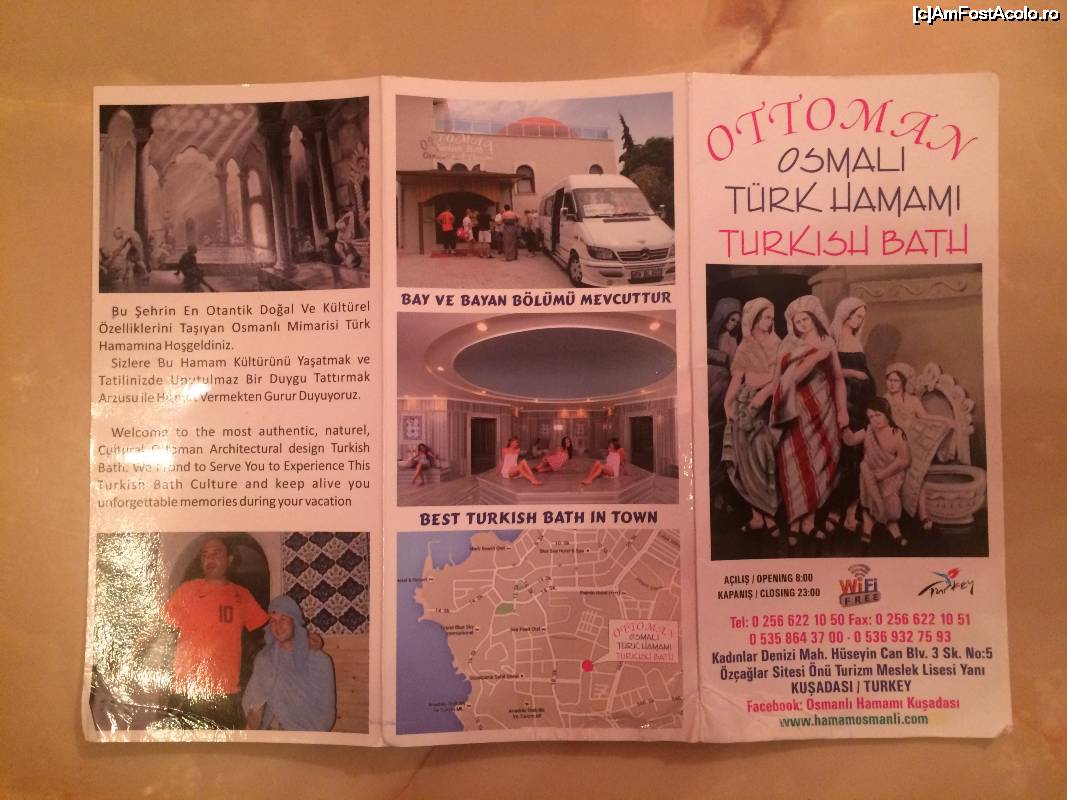 [c]AmFostAcolo.ro
Bu Şehrin En Otantik Doğal Ve Kültürel
Özelliklerini Taşıyan Osmanlı Mimarisi Türk
Hamamına Hoşgeldiniz.
Sizlere Bu Hamam Kültürünü Yaşatmak ve
Tatilinizde Unutulmaz Bir Duygu Tattırmak
Arzusu ile Hizmet Vermekten Gurur Duyuyoruz.
Welcome to the most authentic, naturel,
Cultural Ottoman Architectural design Turkish
Bath. We Proud to Serve You to Experience This
Turkish Bath Culture and keep alive you
unforgettable memories during your vacation
10
OTTOMAN
BAY VE BAYAN BÖLÜMÜ MEVCUTTUR
BEST TURKISH BATH IN TOWN
Blue Sea Hotel & Spa
Grand Blue Sky
International
OTTOMAN
OSMALI
TÜRK HAMAMI
TURKISH BATH
OTTOMAN
OSMALI
TÜRK HAMAMI
TURKISH BATH
AÇILIŞ / OPENING 8:00
KAPANIŞ / CLOSING 23:00
WiFi
FREE
Turkey
Tel: 0 256 622 10 50 Fax: 0 256 622 10 51
0 535 864 37 00 - 0 536 932 75 93
Kadınlar Denizi Mah. Hüseyin Can Blv. 3 Sk. No:5
Özçağlar Sitesi Önü Turizm Meslek Lisesi Yanı
KUŞADASI / TURKEY
Facebook: Osmanlı Hamamı Kuşadası
www.hamamosmanli.com